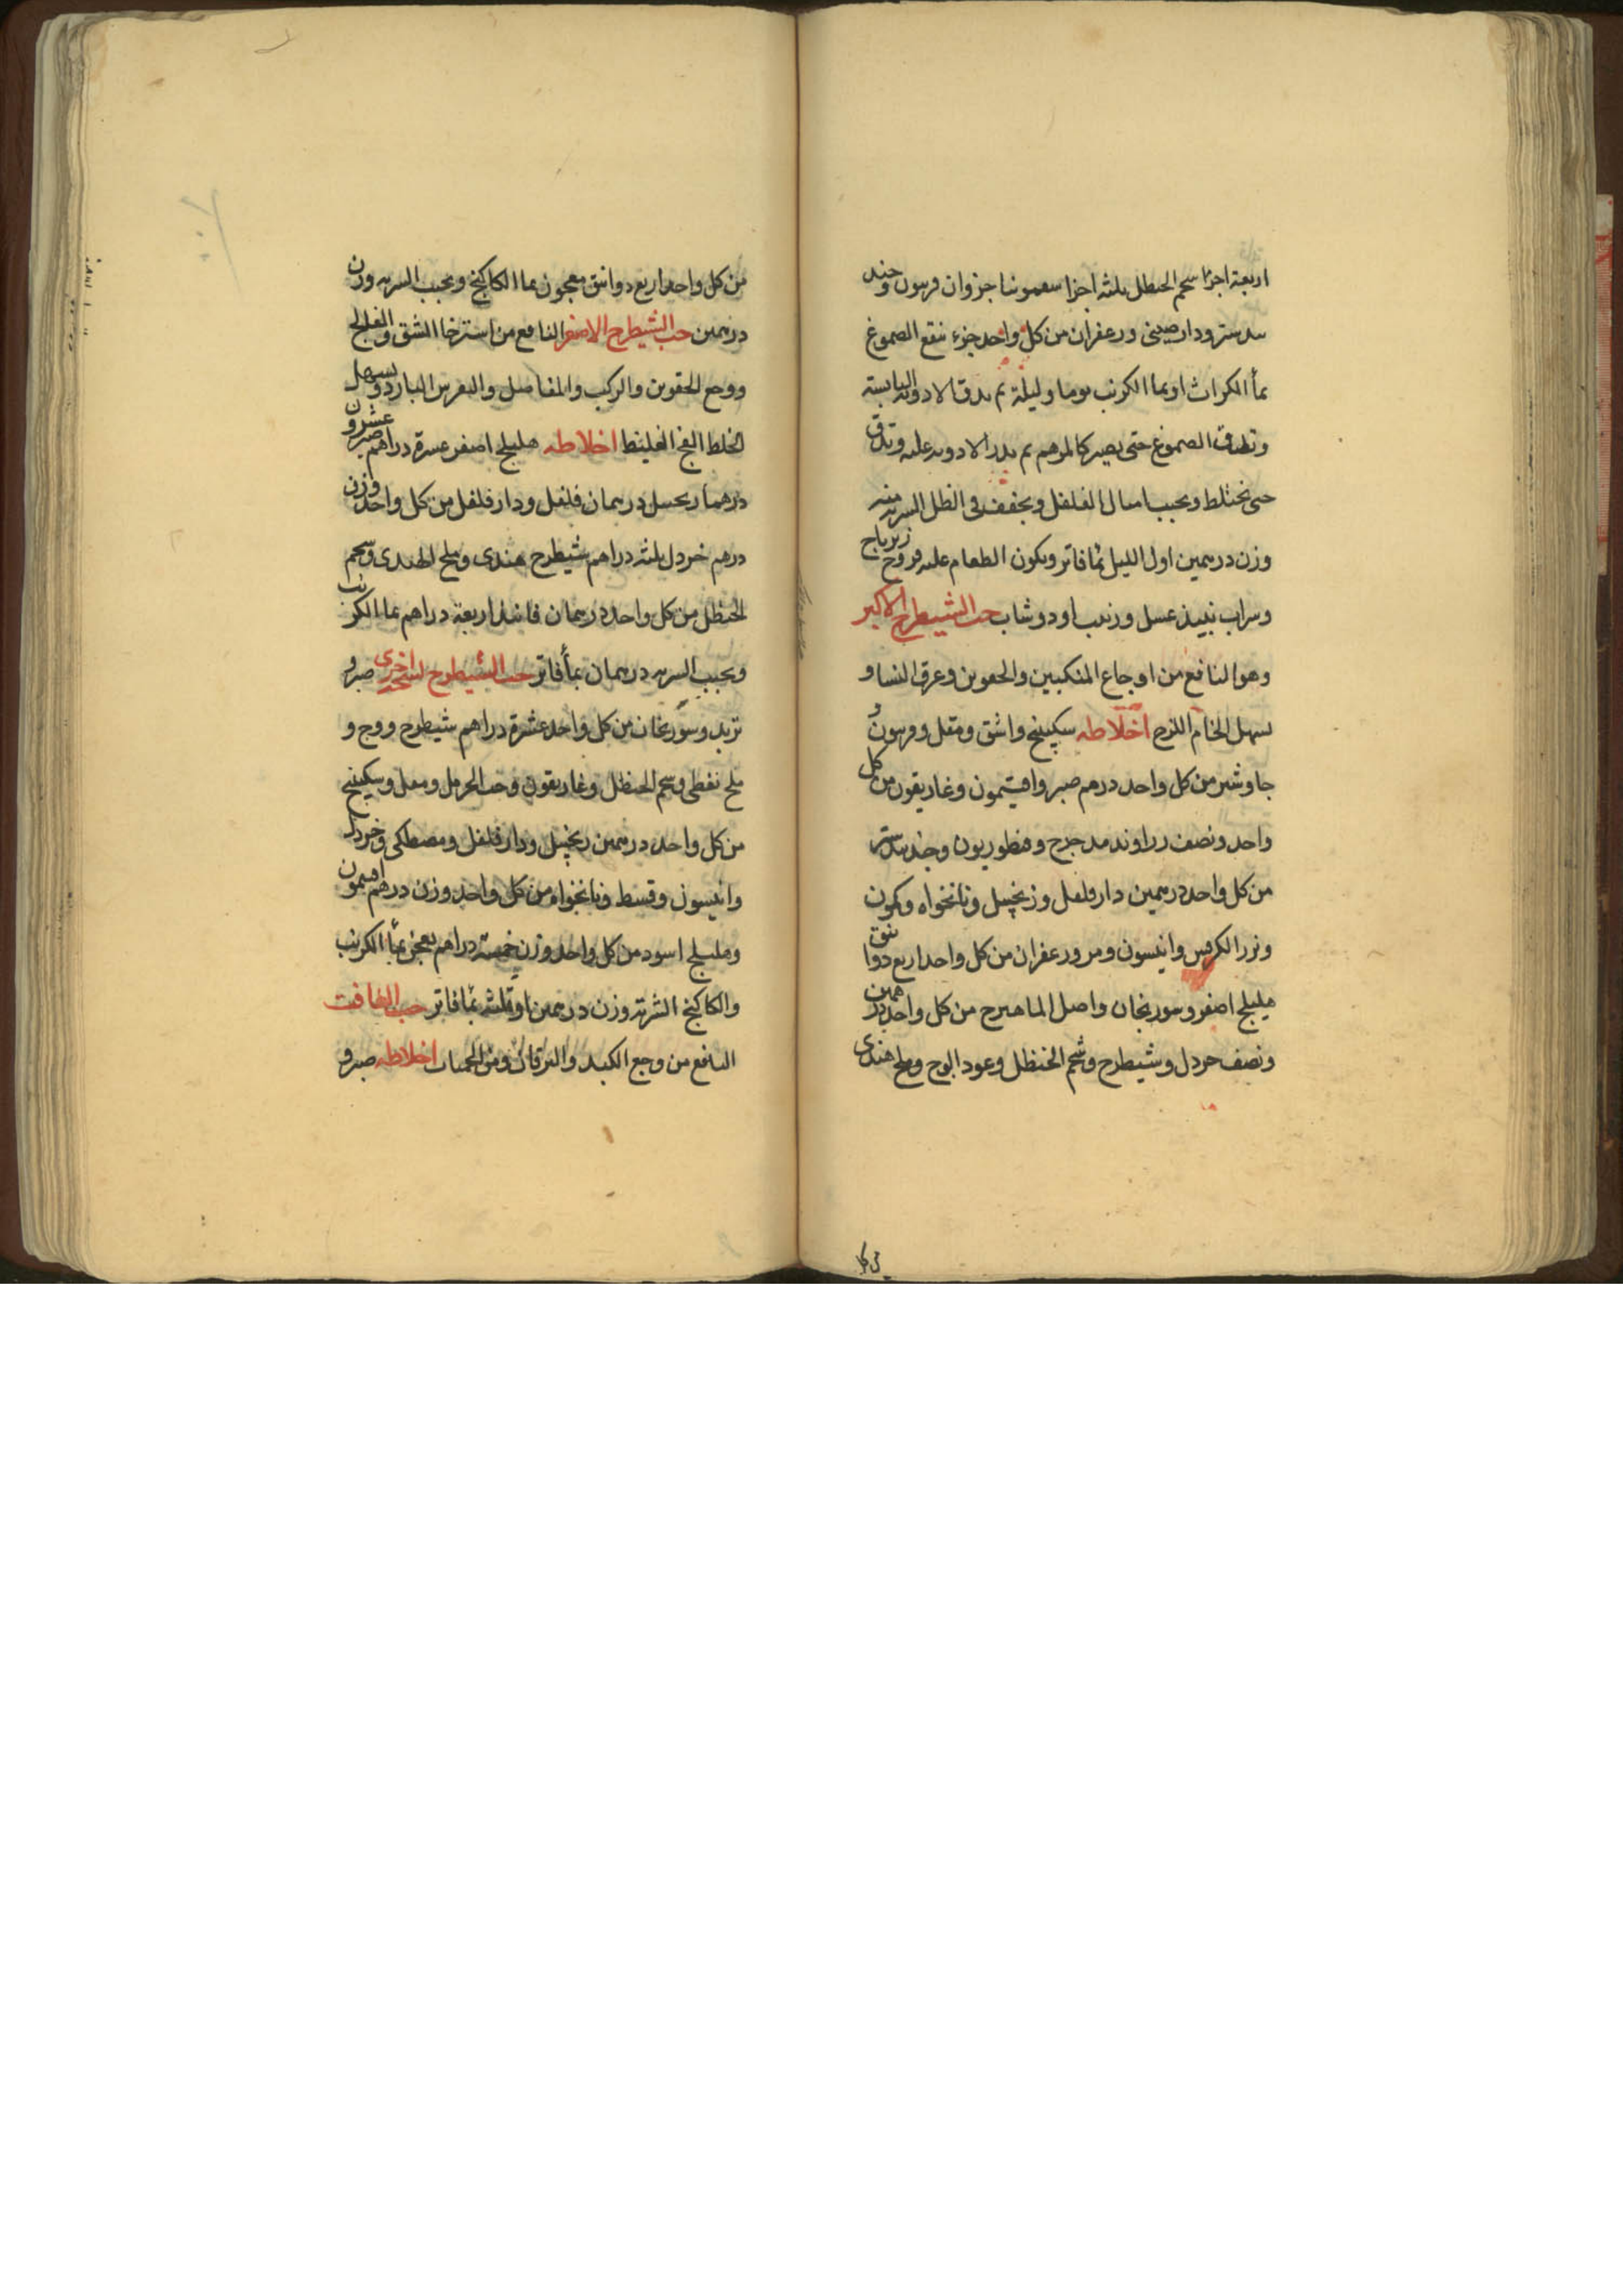 اربعة اجزا شحم الحنظل ثلثه اجزا سقمونيا جزوان فربيون وجند
بيدستر ودار صينى وزعفران من كل واحد جزء تنقع الصموغ
بمأ الكراث او بما الكرنب يوما وليلة ثم يدق الادويه اليابسة
وتطاف الصموغ حتى يصير كالمرهم ثم يذر الادويه عليه وتدق
حتى تختلط ويحبب امثال الفلفل ويجفف فى الظل الشربه منه
وزن درهمين اول الليل بمأ فاتر ويكون الطعام عليه فروخ زيرباج
وشراب نبيذ عسل وزبيب او دوشاب حب الشيطرج الاكبر
وهو النافع من اوجاع المنكبين والحقوين وعرق النسا و
يسهل الخام اللزج اخلاطه سكبينج واشق ومقل وفربيون و
جاوشير من كل واحد درهم صبر وافيتمون وغاريقون من كل
واحد ونصف زراوند مدحرج وقنطوريون وجندبيدستر
من كل واحد درهمين دار فلفل وزنجبيل ونانخواه وكمون
وبزر الكرفس وانيسون ومر وزعفران من كل واحد اربع دوا نق
هليلج اصفر وسورنجان واصل الماهيزج من كل واحد درهمين
ونصف خردل وشيطرج وشحم الحنظل وعود الوج وملح هندى
من كل
من كل واحد اربع دوانق معجون بما الكاكنج ويحبب الشربه وزن
درهمين حب الشيطرج الاصفر النافع من استرخا الشق والفالج
ووجع الحقوين والركب والمفاصل والنقرس البارد ويسهل
الخلط الفج الغليظ اخلاطه هليلج اصفر عشرة دراهم صبر عشرون
درهما زنجبيل درهمان فلفل ودار فلفل من كل واحد وزن
درهم خردل ثلثه دراهم شيطرج هندى وملح الهندى وشحم
الحنظل من كل واحد درهمان فانيذ اربعة دراهم بما الكرنب
ويحبب الشربه درهمان بمأ فاتر حب الشيطرج نسخه اخرى صبر و
تربد وسورنجان من كل واحد عشرة دراهم شيطرج ووج و
ملح نفطى وشحم الحنظل وغاريقون وحب الحرمل ومقل وسكبينج
من كل واحد درهمين زنجبيل ودار فلفل ومصطكى وخردل
وانيسون وقسط ونانخواه من كل واحد وزن درهم افيتمون
وهليلج اسود من كل واحد وزن خمسة دراهم يعجن بمأ الكرنب
والكاكنج الشربة وزن درهمين او ثلثه بمأ فاتر حب الغافت
النافع من وجع الكبد واليرقان ومن الحميات اخلاطه صبر و